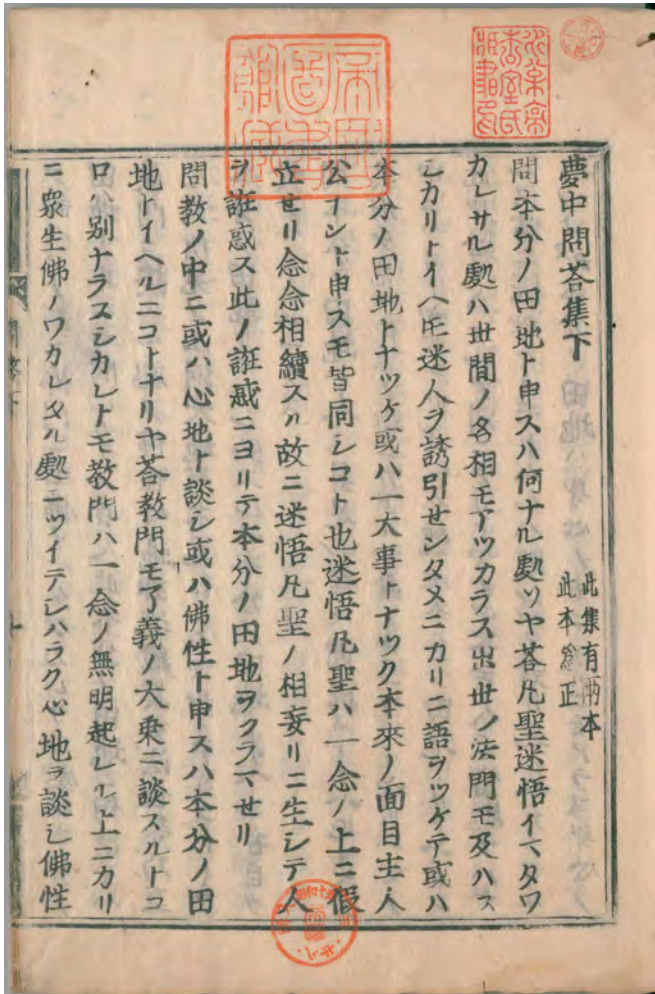 夢中問荅集下
此集有兩本
此本爲正
問本分ノ田地ト申スハ何ナル處ソヤ荅凡聖迷悟イマタワ
カレサル處ハ世間ノ名相モアツカラス出世ノ法門モ及ハス
シカリトイヘ𪜈迷人ヲ誘引センタメニカリニ語ヲツケテ或ハ
本分ノ田地トナツケ或ハ一大事トナツク本來ノ面目主人
公ナント申スモ皆同シコト也迷悟凡聖ハ一念ノ上ニ假
立セリ念念相續スル故ニ迷悟凡聖ノ相妄リニ生シテ人
ヲ誑惑ス此ノ誑惑ニヨリテ本分ノ田地ヲクラマセリ
問教ノ中ニ或ハ心地ト談シ或ハ佛性ト申スハ本分ノ田
地トイヘルニコトナリヤ荅教門モ了義ノ大乗ニ談スルトコ
ロハ別ナラスシカレトモ教門ハ一念ノ無明起レル上ニカリ
ニ衆生佛ノワカレタル處ニツイテシハラク心地ヲ談シ佛性